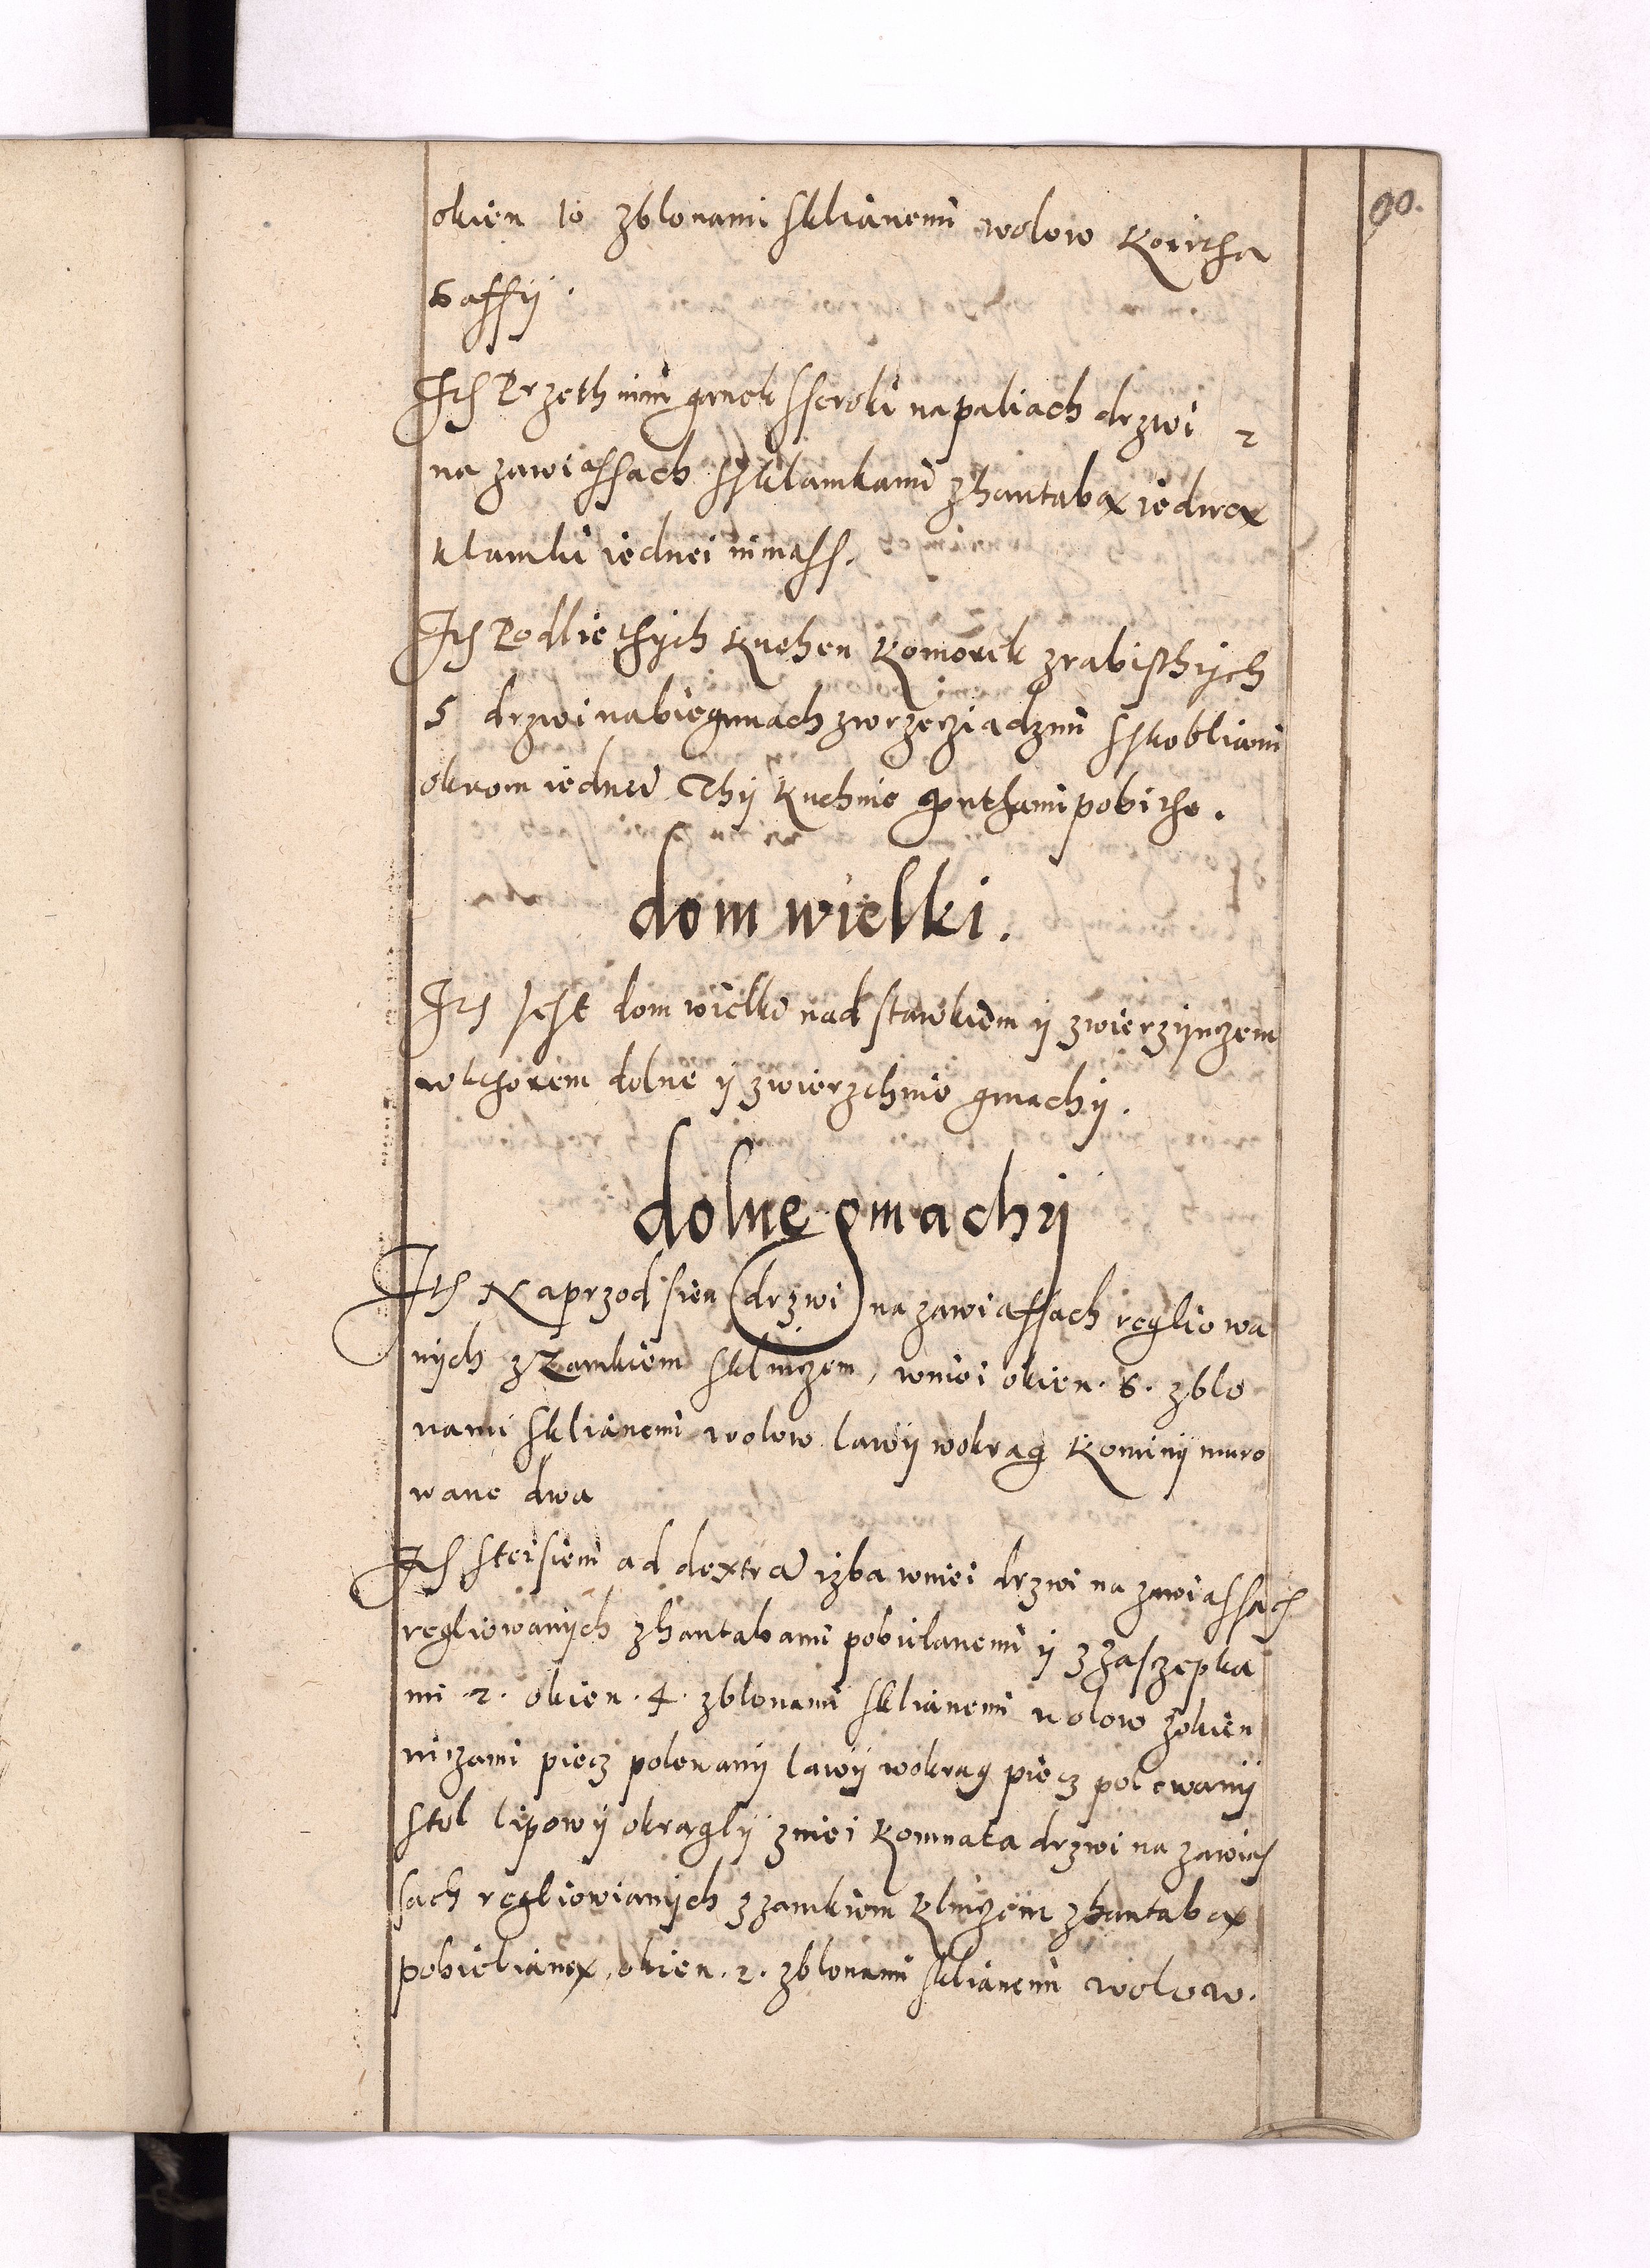 90.
okien 10 zblonami sklianemi wolow
saffÿ.
Jts Przeth nim ganek sseroki napaliach drzwi 2
na zawiassach sskllamkami zhantabax iednex
klamki iednei nimass.
Jts Podlie thÿch kuchen komorek zrabisthÿch
5 drzwi nabiegunach zwrzecziadzmi sskobliami
okrom iednei Thÿ kuchnie gonthami pobithe.
dom wielki.
Jts jest dom wielki nad stawkiem ÿ zwierzÿnczem
wkthorem dolne ÿ zwierzchnie gmachÿ.
dolne gmachÿ
Jts Naprzod sien drzwi na zawiassach regliowa
nÿch zZamkiem skluczem, wniei okien. 6. zblo
nami sklianemi wolow lawÿ wokrag kominÿ muro
wane dwa
Jts steisieni ad dextra izba wniei drzwi na zawiassach
regliowanÿch zhantabami pobielanemi ÿ zzasczepka
mi 2. okien. 4. zblonami sklianemi wolow zokien
niczami piecz polewanÿ lawÿ wokrag piecz polewanÿ
stol lipowÿ okraglÿ zniei komnata drzwi na zawias
sach regliowianÿch zzamkiem kluczem zhantabax
pobielianex, okien. 2. zblonami sklianemi wolow.